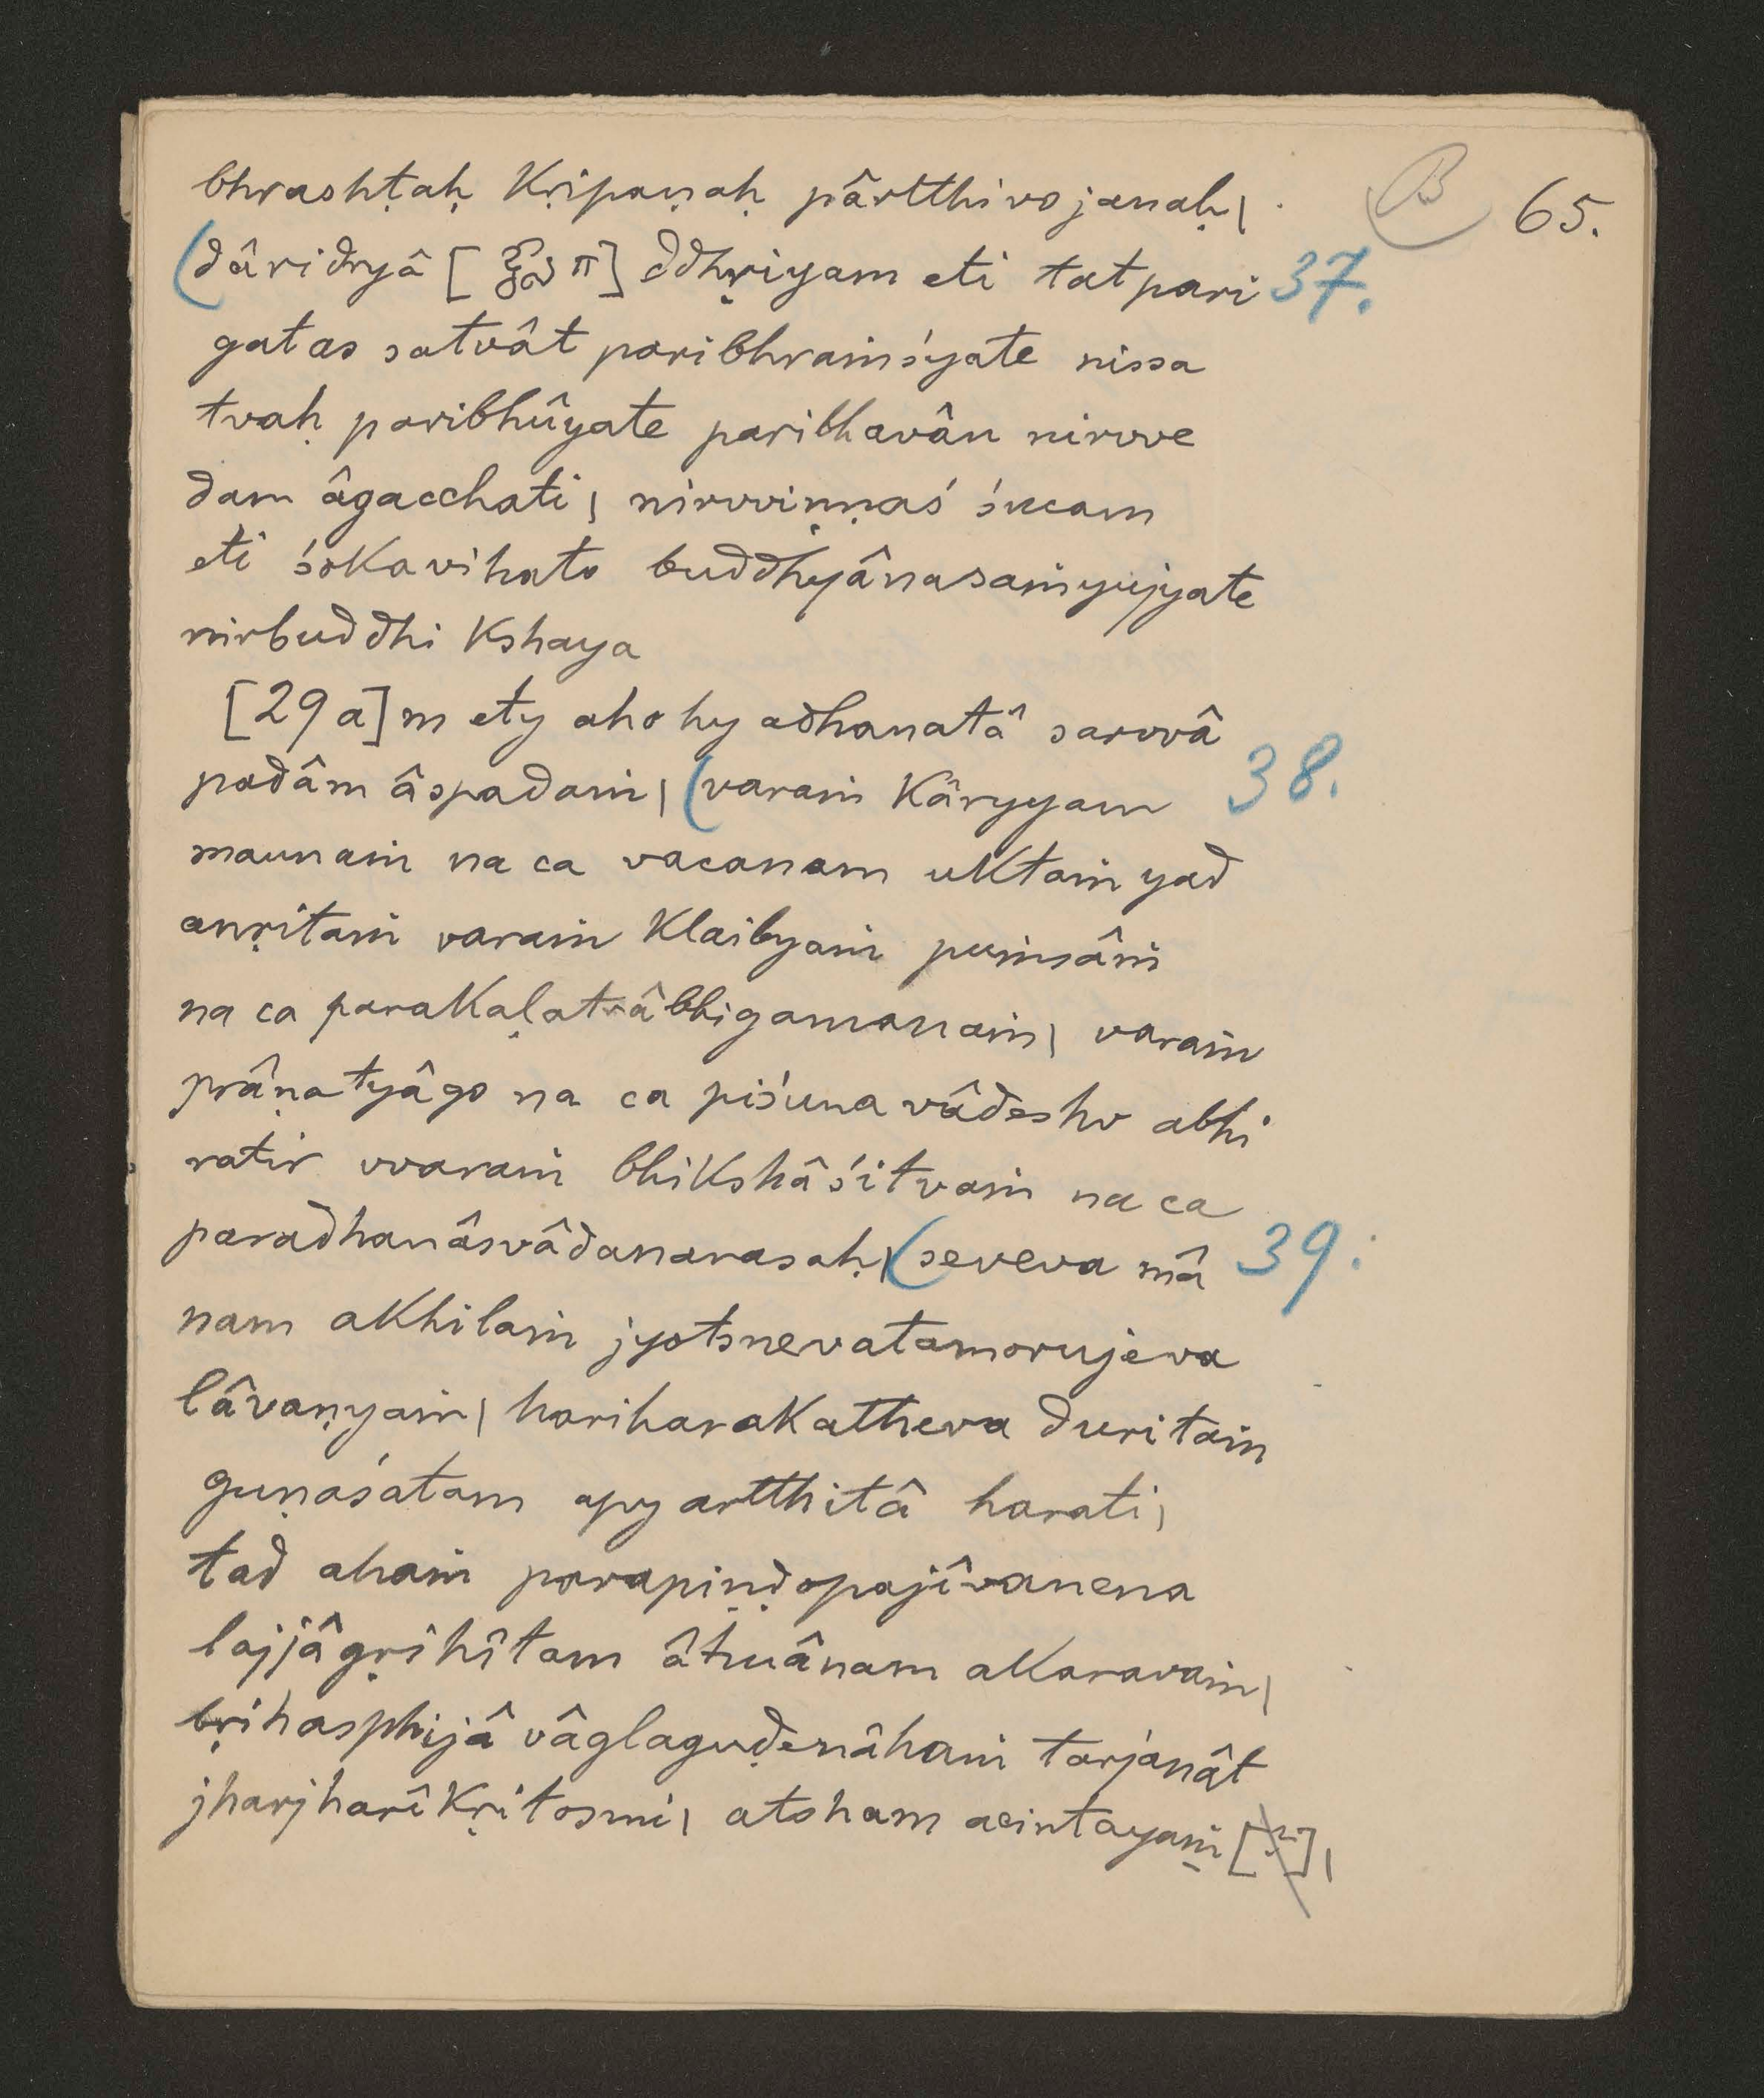 B 65.
bhrashṭaḥ kṛipaṇaḥ pârtthivo janaḥ|
(dâridryâ [ ] ddhṛiyam eti tatpari 37.
gatas satvât paribhraṁśyate nissa
tvaḥ paribhûyate paribhavân nirvve
dam âgacchati| nirvviṇṇaś śucam
eti śokavihato buddhyânasaṁyujyate
nirbuddhi kshaya
[29a]m ety aho hy adhanatâ sarvvâ
padâm âspadaṁ| (varaṁ kâryyam 38.
maunaṁ na ca vacanam uktaṁ yad
anṛitaṁ varaṁ klaibyaṁ puṁsâṁ
na ca parakaḷatrâbhigamanaṁ| varaṁ
prâṇatyâgo na ca piśuna vâdeshv abhi
ratir vvaraṁ bhikshâśitvaṁ na ca
paradhanâsvâdanarasaḥ| (seveva mâ 39.
nam akhilaṁ jyotsnevatamorujeva
lâvaṇyaṁ| hariharakatheva duritaṁ
guṇaśatam apy artthitâ harati|
tad ahaṁ parapiṇḍopajîvanena
lajjâgṛihîtam âtmânam akaravaṁ|
bṛihasphijâ vâglaguḍenâhaṁ tarjanât
jharjharîkṛitosmi| atoham acintayaṁ [ ]|